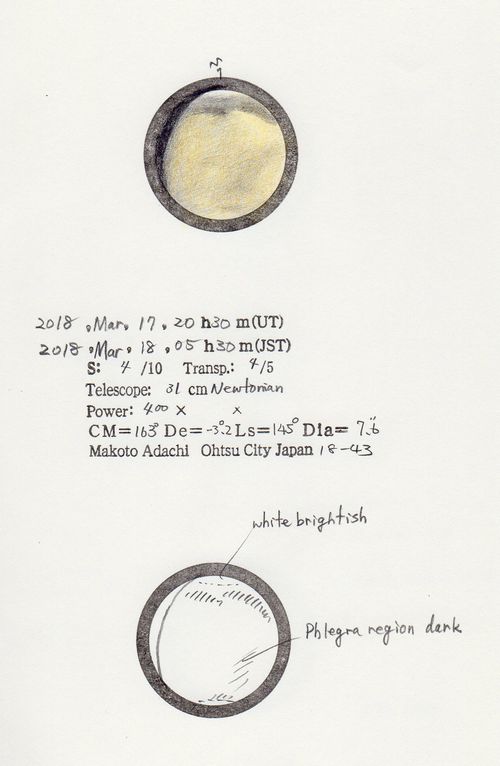 N
2018 . Mar. 17 . 20 h30 m(UT)
2018 . Mar . 18 . 05 h30 m(JST)
S: 4 /10 Transp.: 4/5
Telescope: 31 cm Newtonian
Power: 400 × ×
CM=163° De=-3.°2 Ls=145° Dia= 7."6
Makoto Adachi Ohtsu City Japan 18-43
white brightish
Phlegra region dark